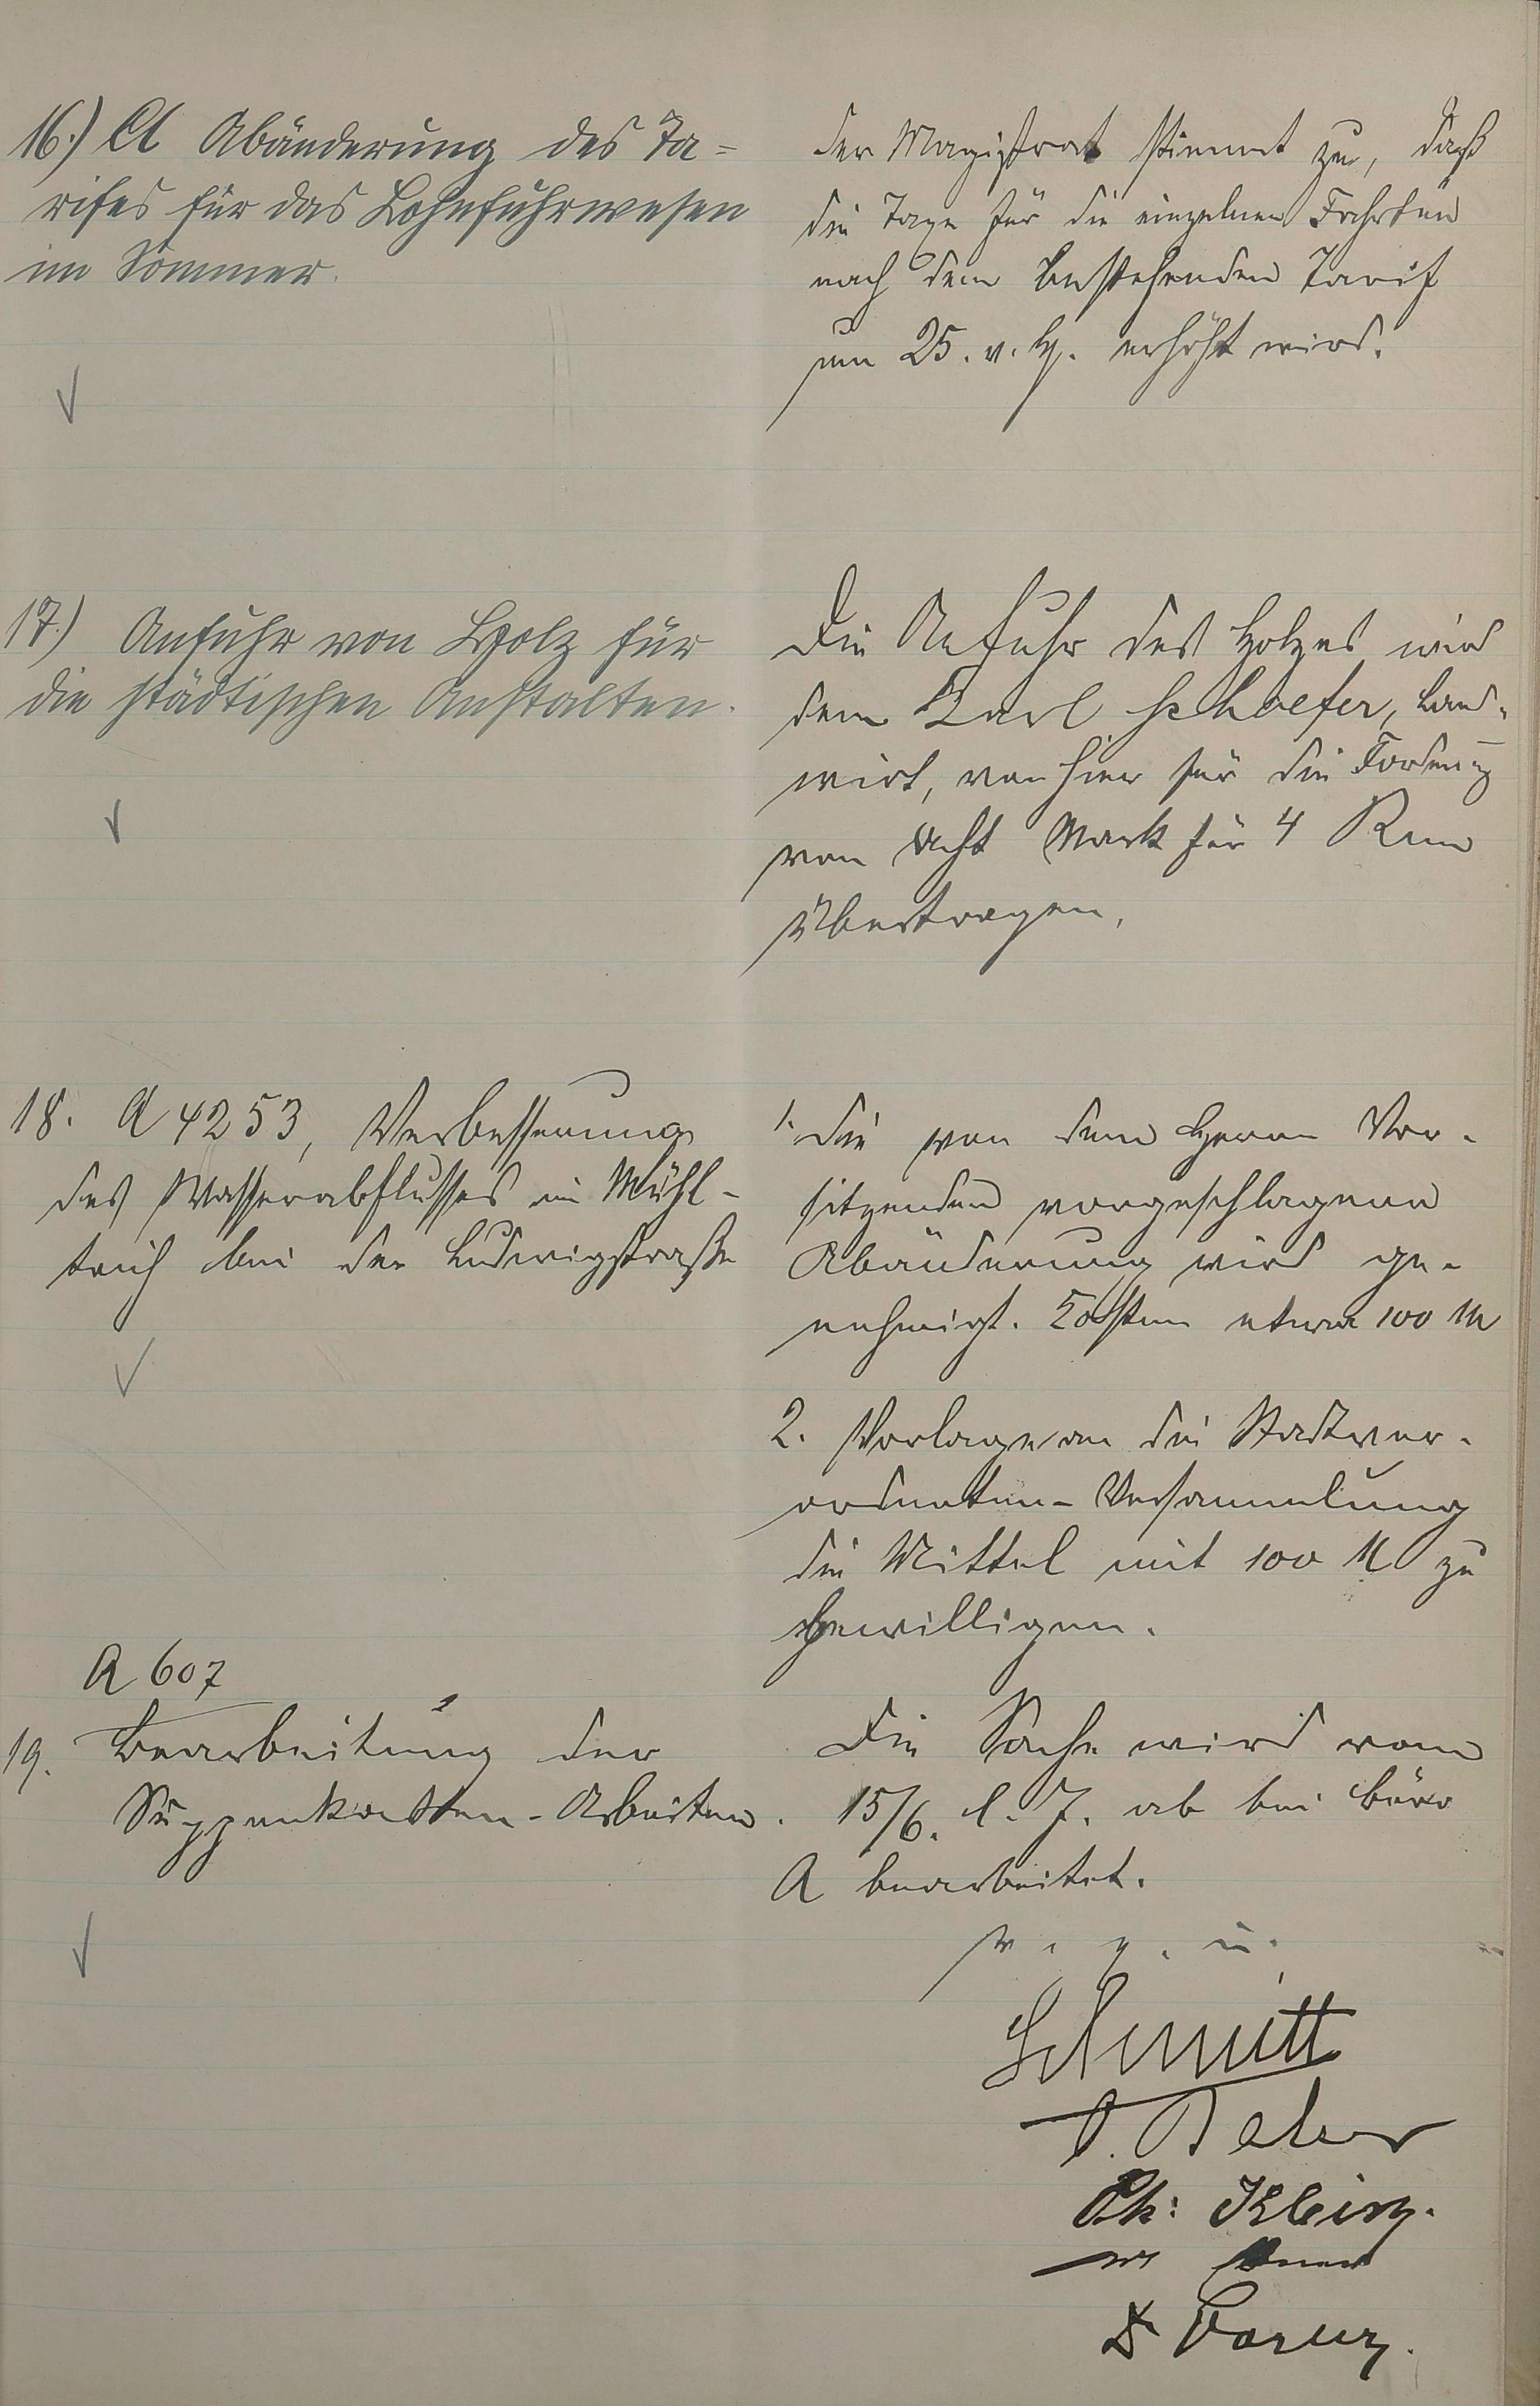 16.) A Abänderung des Ta-
rifes für das Lohnfuhrwesen
im Sommer.
Der Magistrat stimmt zu, daß
die Taxe für die einzelnen Fahrten
nach dem bestehenden Tarif
um 25. v. H. erhöht wird.
17.) Anfuhr von Holz für
die städtischen Anstalten.
Die Anfuhr des Holzes wird
dem Karl Schaefer, Land-
wirt, von hier für die Forderung
von acht Mark für 4 Rm
übertragen.
18. A 4253, Verbesserung
des Wasserabflusses im Mühl-
teich bei der Ludwigstraße
1. Die von dem Herrn Vor-
sitzenden vorgeschlagene
Abänderung wird ge-
nehmigt. Kosten etwa 100 M
2. Vorlage an die Stadtver-
ordneten-Versammlung
die Mittel mit 100 M zu
bewilligen.
A 607
19. Bearbeitung der
Suppenkosten-Arbeiten.
Die Sache wird vom
15/6. d. J. ab bei Büro
A bearbeitet.
v. g. u.
Schmitt
Ph: Klein.
Dr